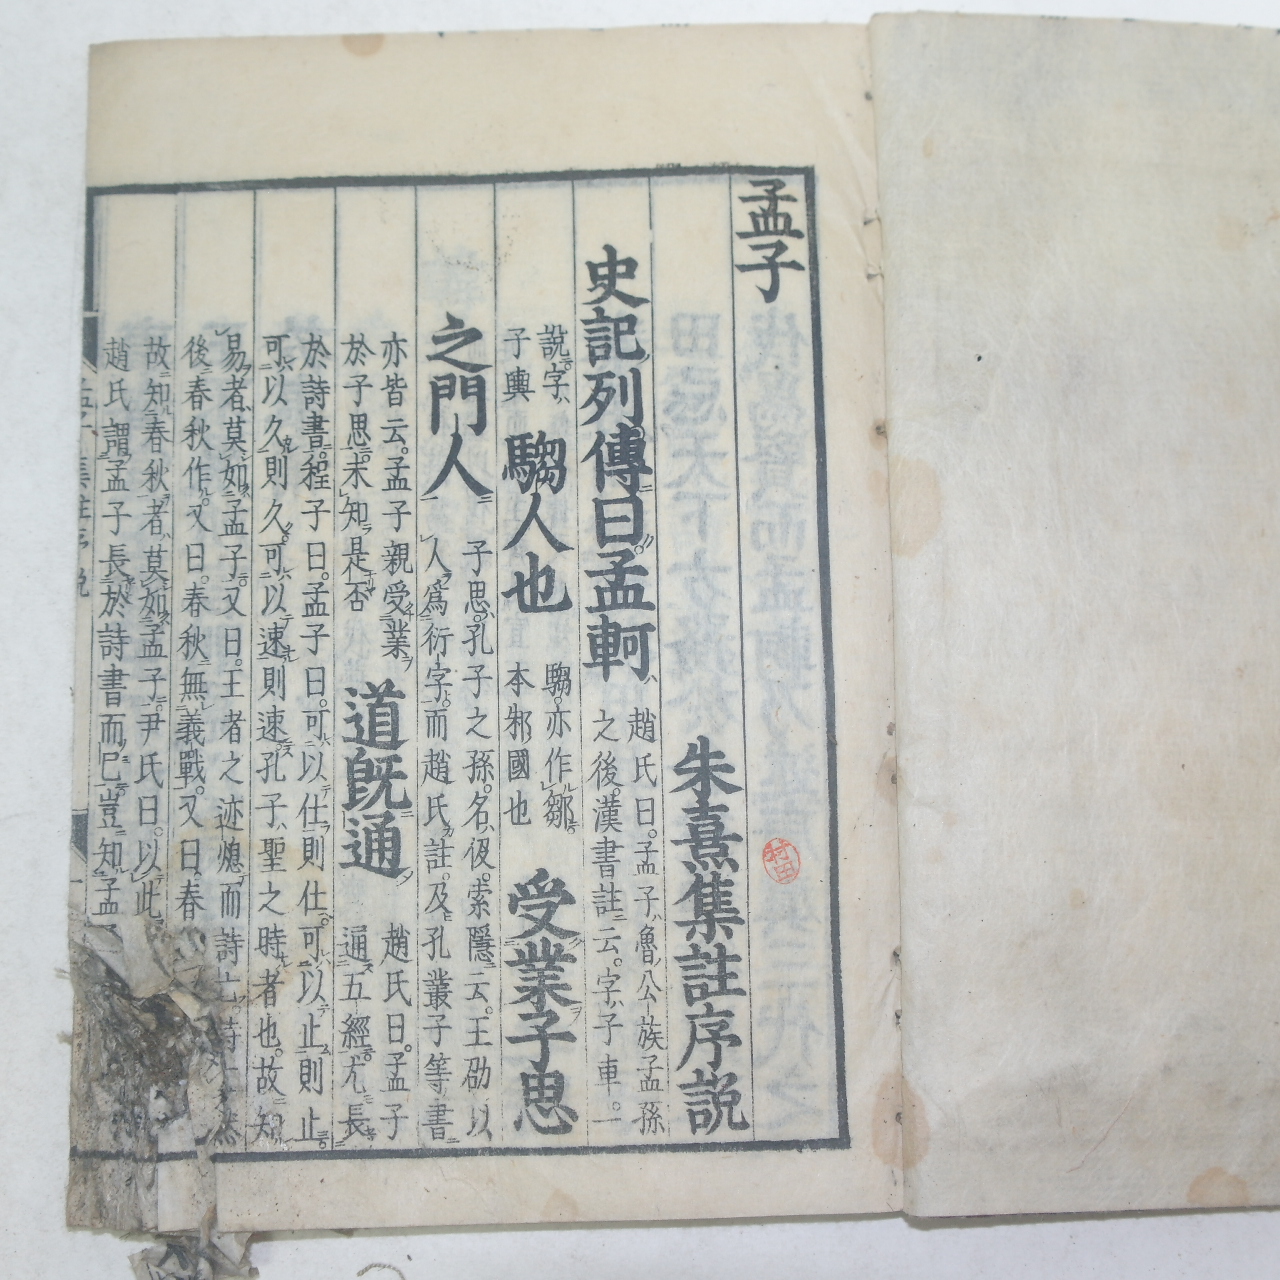 孟子
朱熹集註序説
史記列傳曰孟軻
趙氏曰孟子魯公族孟孫
之後漢書註云字子車一
說字
子輿
騶人也
騶亦作鄒
本邾國也
受業子思
之門人
子思孔子之孫名伋索隱云王劭以
人爲衍字而趙氏註及孔叢子等書
亦皆云孟子親受業
於子思未知是否
道既通
趙氏曰孟子
通五經尤長
於詩書程子曰孟子曰可以仕則仕可以止則止
可以久則久可以速則速孔子聖之時者也故知
易者莫如孟子又曰王者之迹熄而詩亡詩亡然
後春秋作又曰春秋無義戰又曰春
故知春秋者莫如孟子尹氏曰以此
趙氏謂孟子長於詩書而已豈知孟
村田